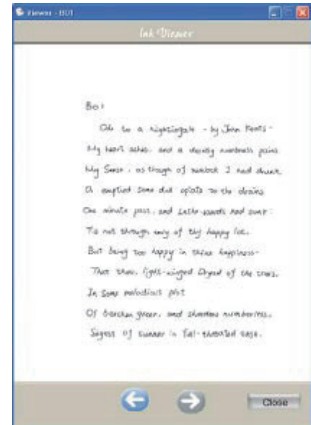 Viewer - B01
Ink Viewer
B01
Ode to a nightingale - by John Keats -
My heart aches, and a drowsy numbness pains
My Sense, as though of hemlock I had drunk,
Or emptied some dull opiate to the drains
One minute past, and Lethe-wards had sunk:
Tis not through envy of thy happy lot,
But being too happy in thine happiness-
That thou, light-winged Dryad of the trees,
In Some melodious plot
Of beechen green, and shadows numberless,
Singest of summer in full-throated ease.
Close